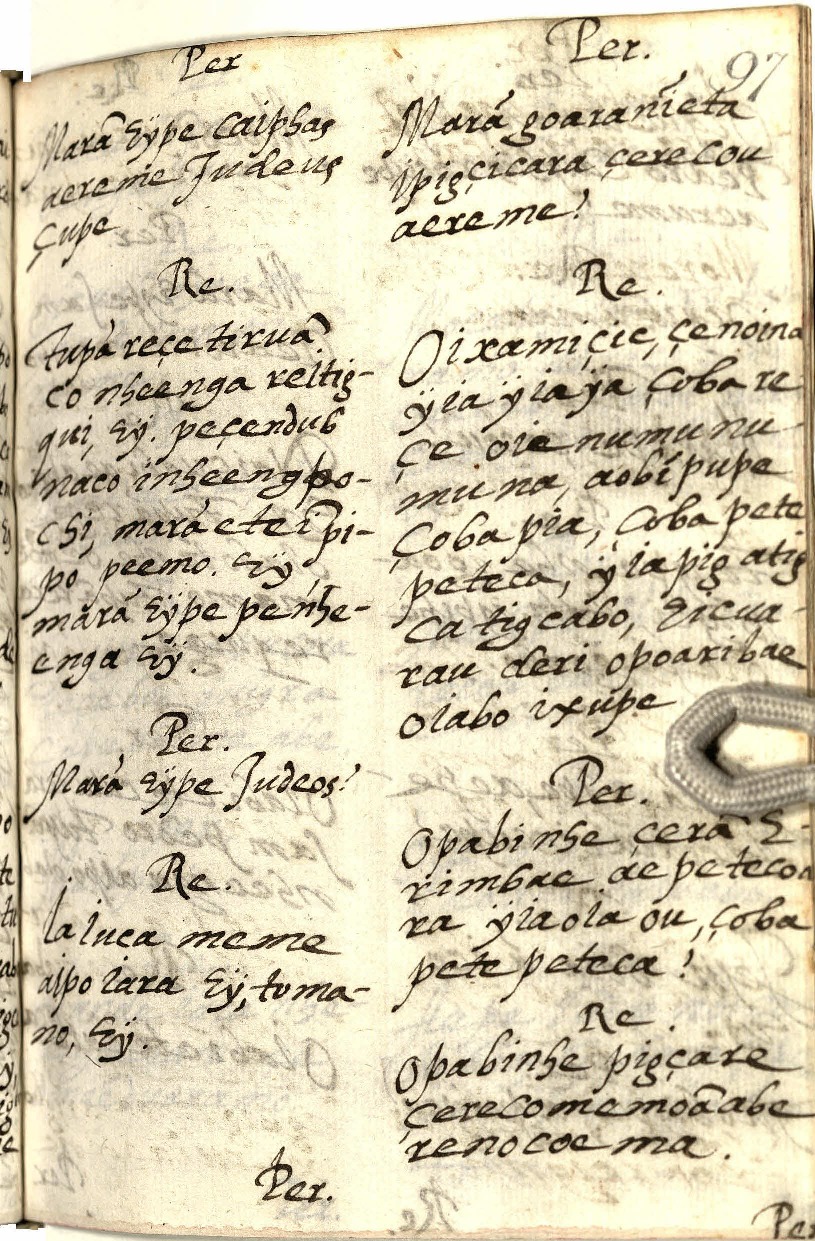 97
Per
Marã Eÿpe Caiphas
aereme Judeus
çupe
Re.
Tupã reçe tiruã
co nheenga reitig-
qui, Eÿ. peçendub
naco inheengpo-
chi, marã etei pi-
pó peemo. Eÿ,
marã Eÿpe penhe-
enga Eÿ.
Per.
Marã Eÿpe Judeos?
Re.
Iaiuca meme
aipo iara Eÿ, toma-
no, Eÿ.
Per.
Per.
Marã goaranieta
ipigçicara çerecou
aereme?
Re.
Oixamiçic, çenoina
ÿia ÿiaÿa çoba re
çe oie numunu
muna, aobi pupe
çoba pia, çoba pete
peteca, ÿiapig atig
ca tigcabo, Eicua-
rau deri opoaribae
oiabo ixupe
Per.
Opabinhe çerã E-
rimbae ae petecoa
ra ÿiaoia ou, çoba
pete peteca?
Re.
Opabinhe pigçare
çerecomemoãabe
renocoema.
Per